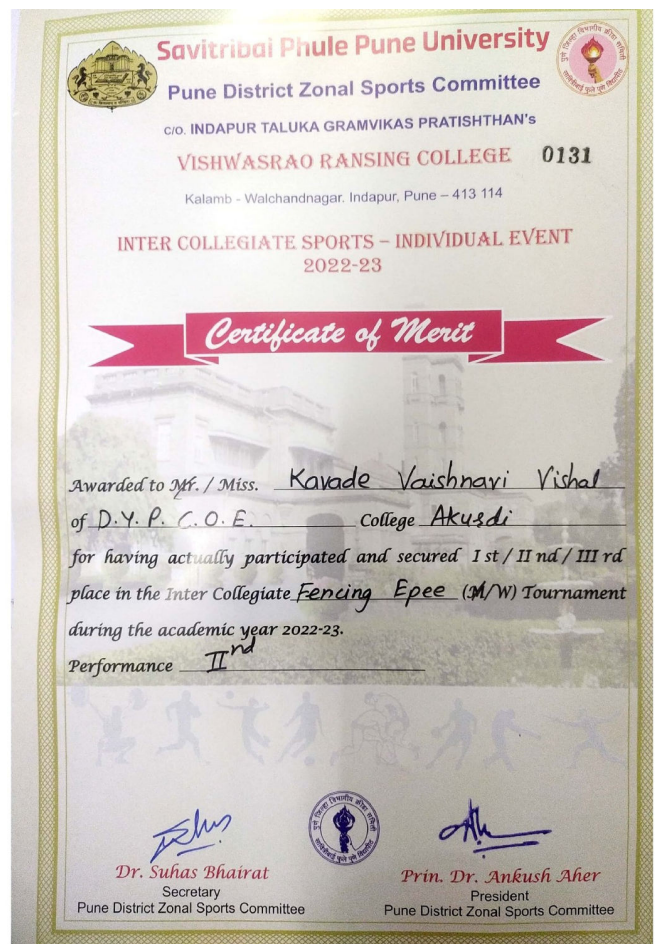 Savitribai Phule Pune University
Pune District Zonal Sports Committee
C/O. INDAPUR TALUKA GRAMVIKAS PRATISHTHAN's
VISHWASRAO RANSING COLLEGE 0131
Kalamb - Walchandnagar. Indapur, Pune – 413 114
INTER COLLEGIATE SPORTS – INDIVIDUAL EVENT
2022-23
Certificate of Merit
Awarded to Mr. / Miss. Kavade Vaishnavi Vishal
of D.Y.P.C.O.E. College Akurdi
for having actually participated and secured I st / II nd / III rd
place in the Inter Collegiate Fencing Epee (M/W) Tournament
during the academic year 2022-23.
Performance IInd
Dr. Suhas Bhairat
Secretary
Pune District Zonal Sports Committee
Prin. Dr. Ankush Aher
President
Pune District Zonal Sports Committee